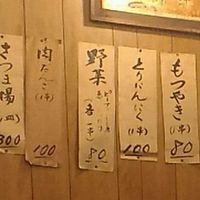 もつやき
(1串)
80
とりにんにく
(1串)
100
野菜
ピーマン
(各一串)
80
肉だんご
(1串)
100
さつま揚
(1皿)
300